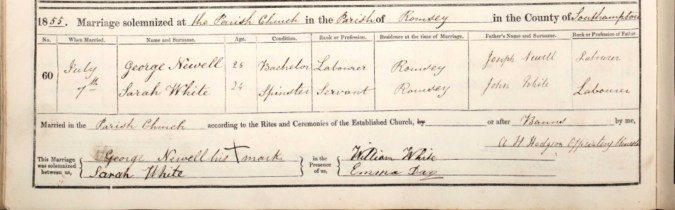 1855. Marriage solemnized at the Parish Church in the Parish of Romsey in the County of Southampton
No. When Married. Name and Surname. Age. Condition. Rank or Profession. Residence at the time of Marriage. Father's Name and Surname. Rank or Profession of Father
60 July George Newell 24 Bachelor Labourer Romsey Joseph Newell Labourer
7th Sarah White 24 Spinster Servant Romsey John White Labourer
Married in the Parish Church according to the Rites and Ceremonies of the Established Church, by or after Banns by me,
A H Hodgson Officiating
This Marriage was solemnized between us, George Newell his + mark
Sarah White
in the Presence of us, William White
Emma Day